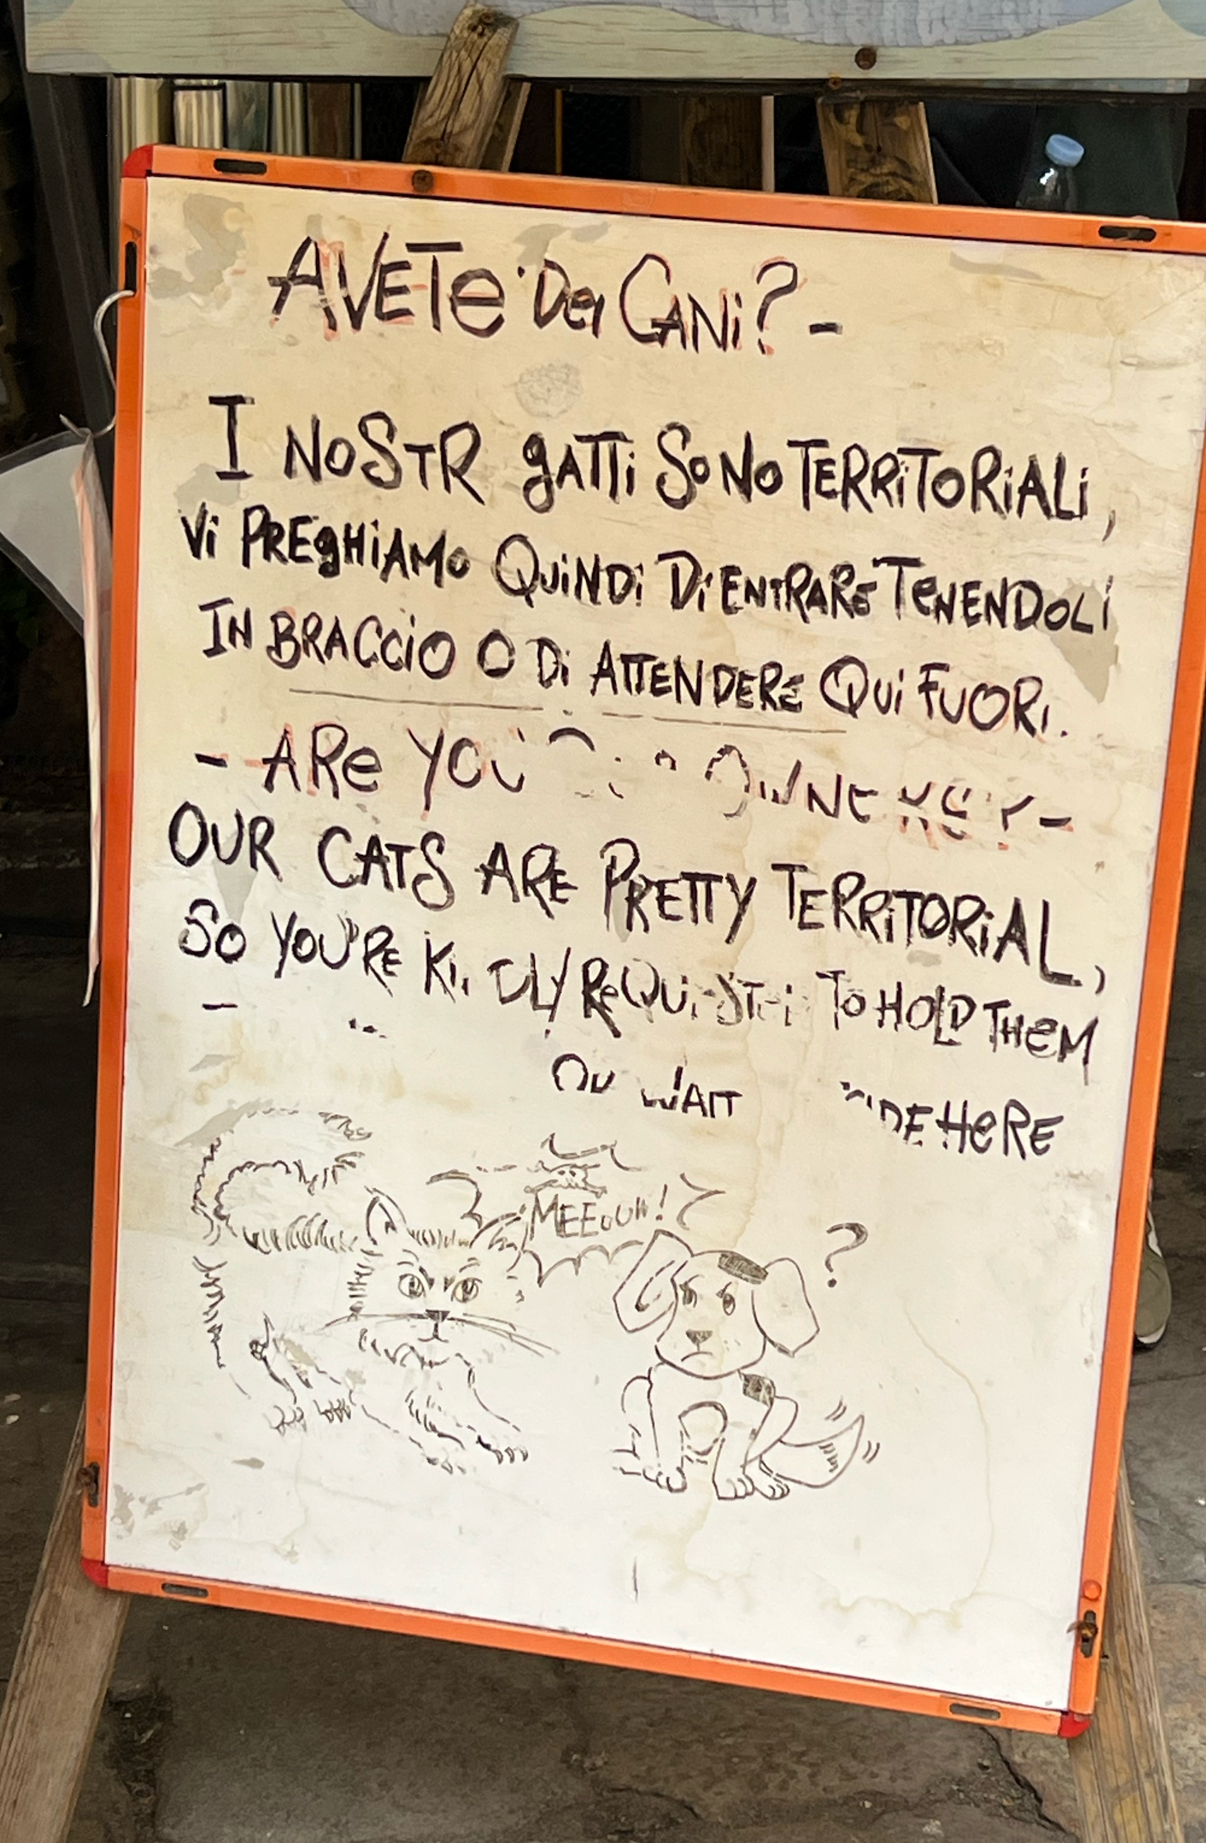 AVETE DEI CANI? -
I NOSTR GATTI SONO TERRITORIALI,
VI PREGHIAMO QUINDI DI ENTRARE TENENDOLI
IN BRACCIO O DI ATTENDERE QUI FUORI.
- ARE YOU OWNERS? -
OUR CATS ARE PRETTY TERRITORIAL,
SO YOU'RE KINDLY REQUESTED TO HOLD THEM
WAIT HERE
MEEOUW!
?